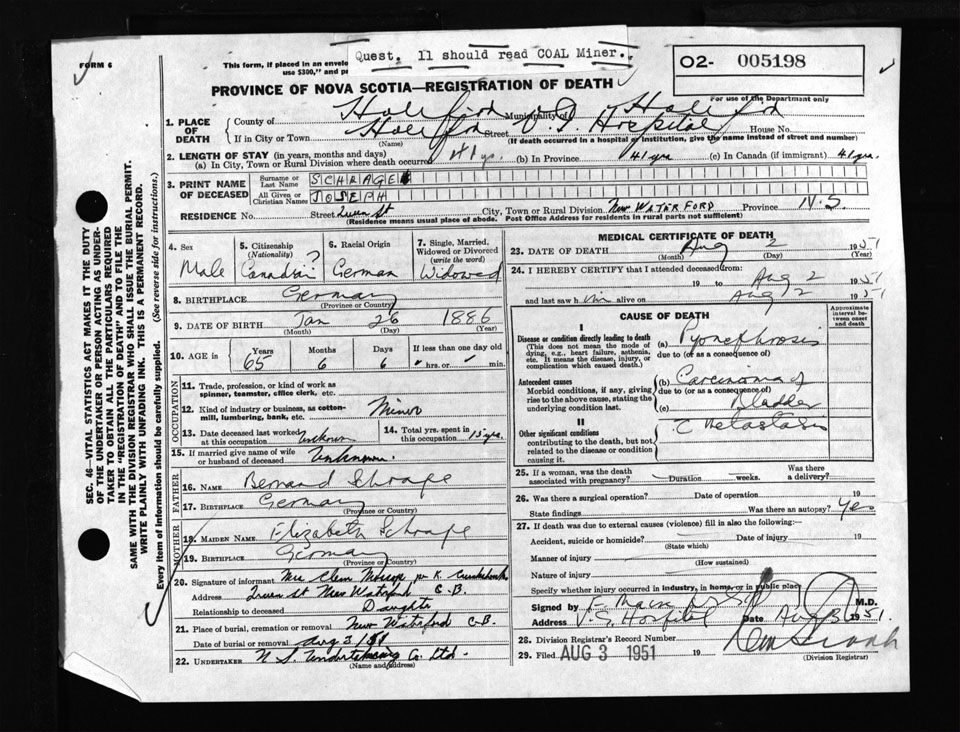 FORM 6
This form, if placed in an envelo
use $300," and p
Quest. 11 should read COAL Miner.
O2- 005198
For use of the Department only
PROVINCE OF NOVA SCOTIA—REGISTRATION OF DEATH
1. PLACE OF DEATH
County of Halifax Municipality of Halifax
If in City or Town Halifax Street V.G. Hospital House No.
(Name) (If death occurred in a hospital or institution, give the name instead of street and number)
2. LENGTH OF STAY (in years, months and days)
(a) In City, Town or Rural Division where death occurred (b) In Province 41 yrs (c) In Canada (if immigrant) 41 yrs.
3. PRINT NAME OF DECEASED
Surname or Last Name SCHRAGE
All Given or Christian Names JOSEPH
RESIDENCE No. Street City, Town or Rural Division New WATERFORD Province N.S.
(Residence means usual place of abode. Post Office Address for residents in rural parts not sufficient)
4. Sex Male
5. Citizenship (Nationality) Canadian ?
6. Racial Origin German
7. Single, Married, Widowed or Divorced (write the word) Widowed
8. BIRTHPLACE Germany
(Province or Country)
9. DATE OF BIRTH Jan 26 1886
(Month) (Day) (Year)
10. AGE in Years Months Days If less than one day old
65 6 6 hrs. or min.
OCCUPATION
11. Trade, profession, or kind of work as spinner, teamster, office clerk, etc.
12. Kind of industry or business, as cotton-mill, lumbering, bank, etc. Miner
13. Date deceased last worked at this occupation Unknown
14. Total yrs. spent in this occupation 15 yrs.
15. If married give name of wife or husband of deceased Unknown.
FATHER
16. NAME Bernard Schrage
17. BIRTHPLACE Germany
(Province or Country)
MOTHER
18. MAIDEN NAME Elizabeth Schrage
19. BIRTHPLACE Germany
(Province or Country)
20. Signature of informant Mrs Clem
Address St New Waterford C.B.
Relationship to deceased Daughter
21. Place of burial, cremation or removal New Waterford C.B.
Date of burial or removal Aug 3/51
22. UNDERTAKER N S Undertaking Co. Ltd.
(Name and address)
MEDICAL CERTIFICATE OF DEATH
23. DATE OF DEATH Aug 2 1951
(Month) (Day) (Year)
24. I HEREBY CERTIFY that I attended deceased from
19 to Aug 2 1951
and last saw him alive on Aug 2 1951
CAUSE OF DEATH
Approximate interval between onset and death
I
Disease or condition directly leading to death
(This does not mean the mode of dying, e.g., heart failure, asthenia, etc. It means the disease, injury, or complication which caused death.)
(a) Pyonephrosis
due to (or as a consequence of)
Antecedent causes
Morbid conditions, if any, giving rise to the above cause, stating the underlying condition last.
(b) Carcinoma of
due to (or as a consequence of)
(c) Bladder
II
Other significant conditions
contributing to the death, but not related to the disease or condition causing it.
c Metastasis
25. If a woman, was the death associated with pregnancy? Duration weeks. Was there a delivery?
26. Was there a surgical operation? Date of operation 19
State findings Was there an autopsy? Yes
27. If death was due to external causes (violence) fill in also the following:—
Accident, suicide or homicide? Date of injury 19
(State which)
Manner of injury
(How sustained)
Nature of injury
Specify whether injury occurred in industry, in home, or in public place
Signed by M.D.
Address V.G. Hospital Date Aug 3 1951
28. Division Registrar's Record Number
29. Filed AUG 3 1951 19
(Division Registrar)
SEC. 46—VITAL STATISTICS ACT MAKES IT THE DUTY
OF THE UNDERTAKER OR PERSON ACTING AS UNDER-
TAKER TO OBTAIN ALL THE PARTICULARS REQUIRED
IN THE "REGISTRATION OF DEATH" AND TO FILE THE
SAME WITH THE DIVISION REGISTRAR WHO SHALL ISSUE THE BURIAL PERMIT.
WRITE PLAINLY WITH UNFADING INK. THIS IS A PERMANENT RECORD.
Every item of information should be carefully supplied. (See reverse side for instructions.)